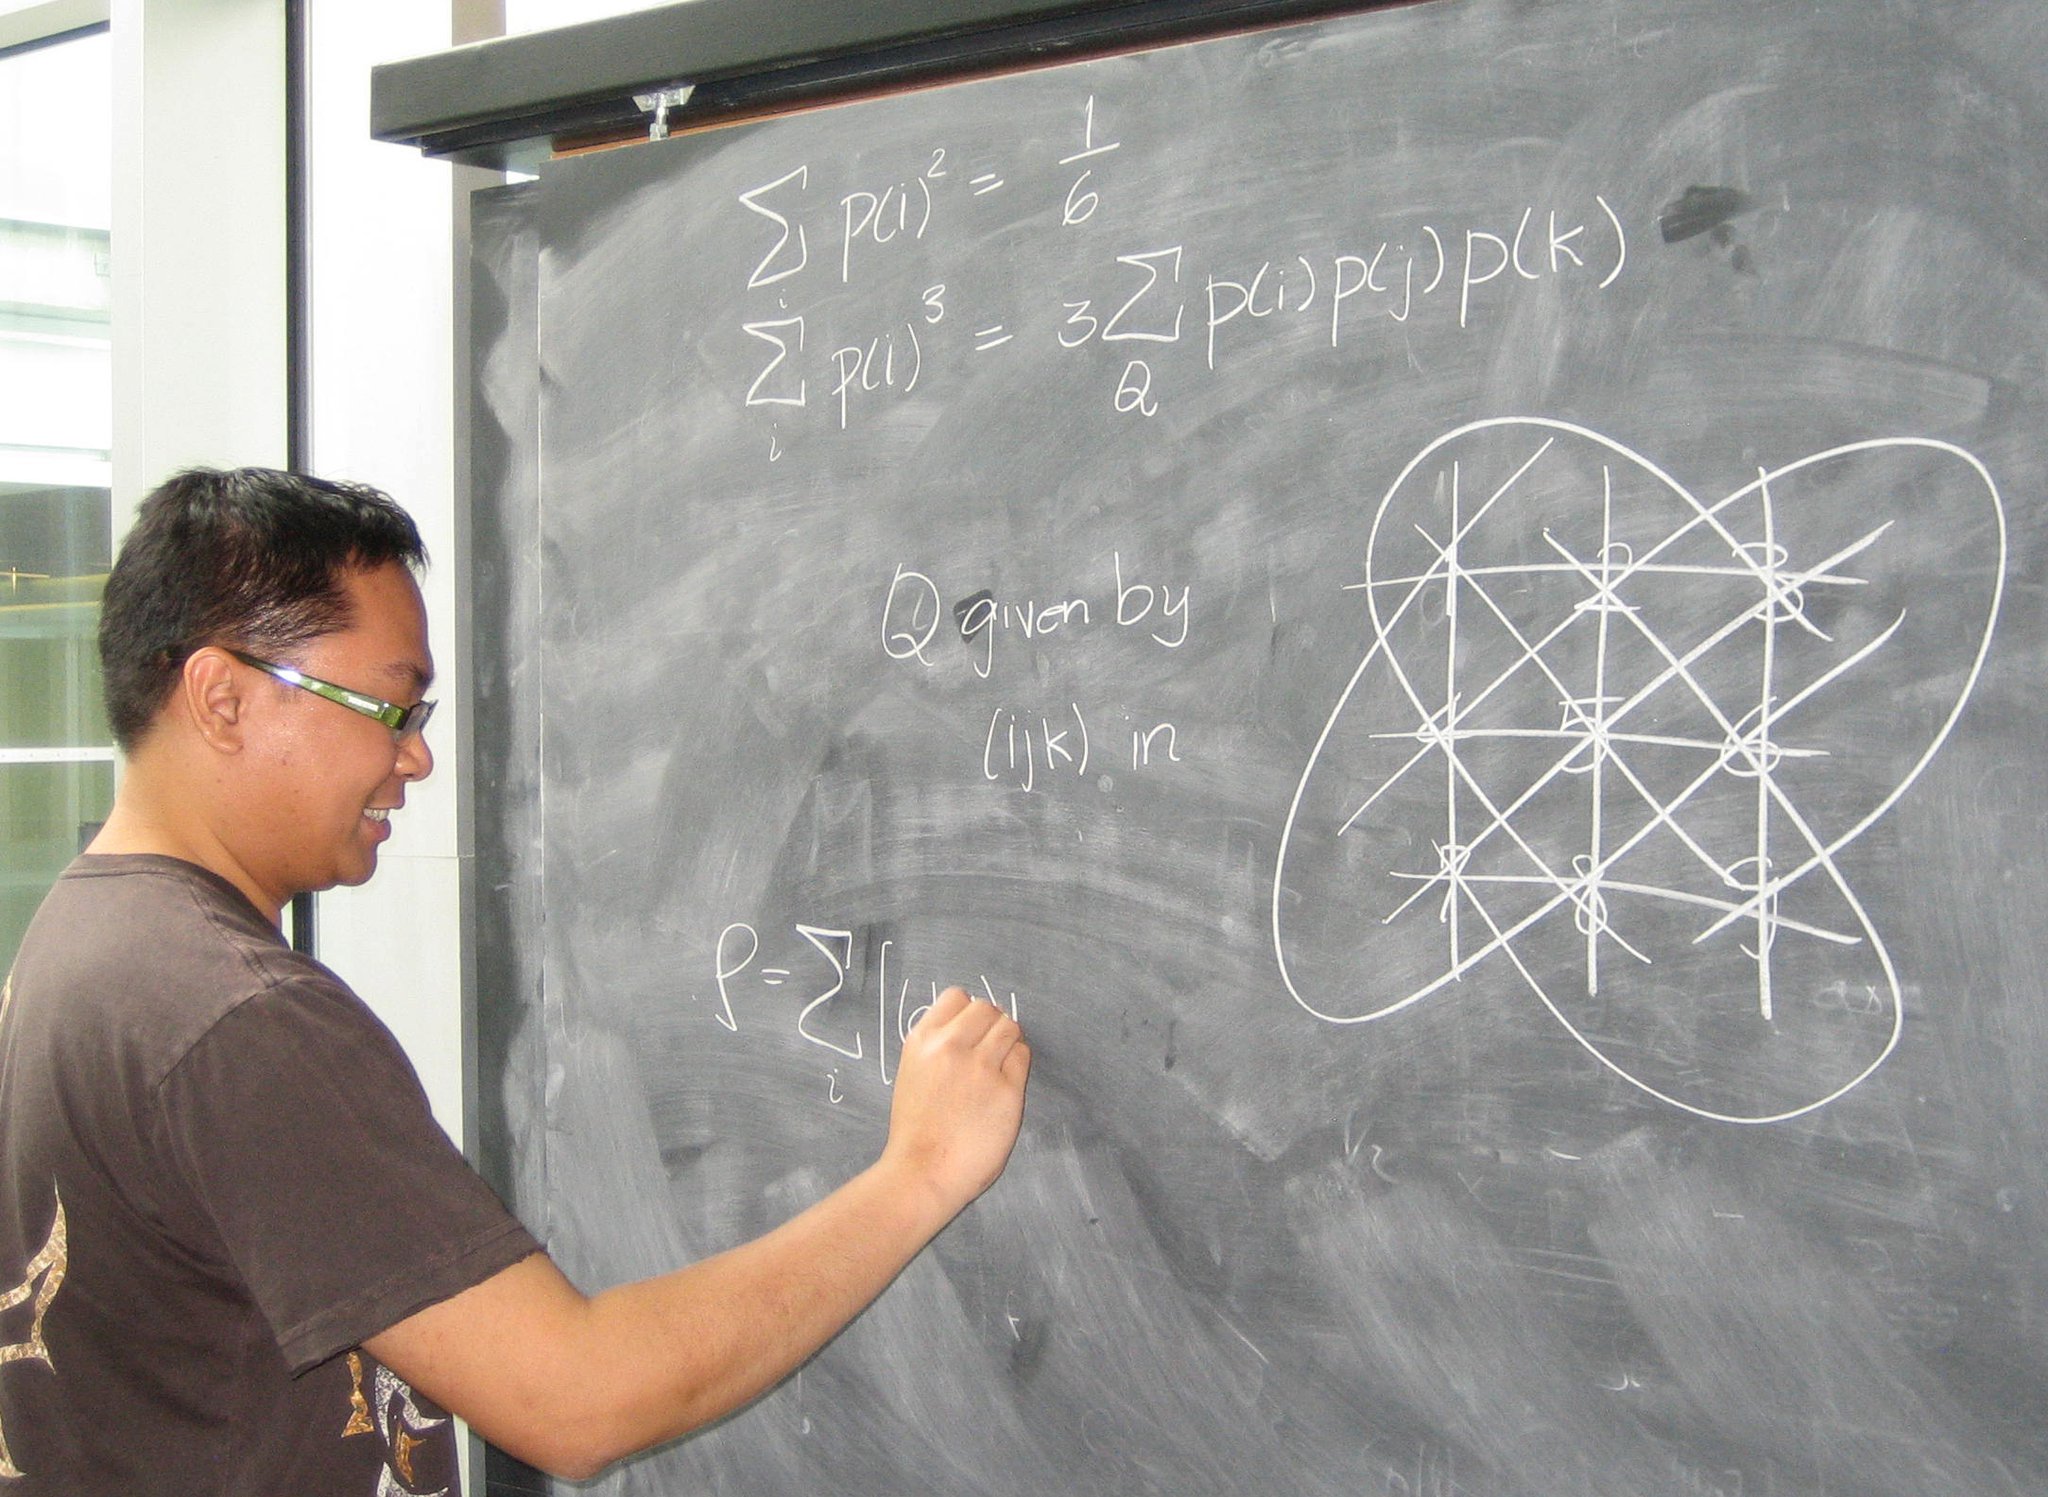 ∑_i p(i)² = 1/6
∑_i p(i)³ = 3∑_Q p(i)p(j)p(k)
Q given by
(ijk) in
ρ = ∑_i [(d